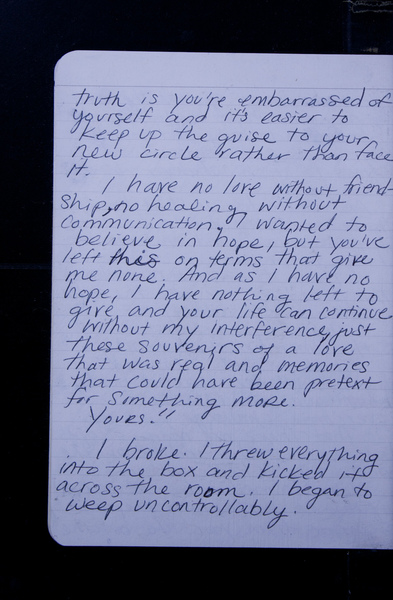 truth is you're embarrassed of
yourself and it's easier to
keep up the guise to your
new circle rather than face
it.
I have no love without friend-
ship, no healing without
communication. I wanted to
believe in hope, but you've
left this on terms that give
me none. And as I have no
hope, I have nothing left to
give and your life can continue
without my interference, just
these souvenirs of a love
that was real and memories
that could have been pretext
for something more.
Yours."
I broke. I threw everything
into the box and kicked it
across the room. I began to
weep uncontrollably.